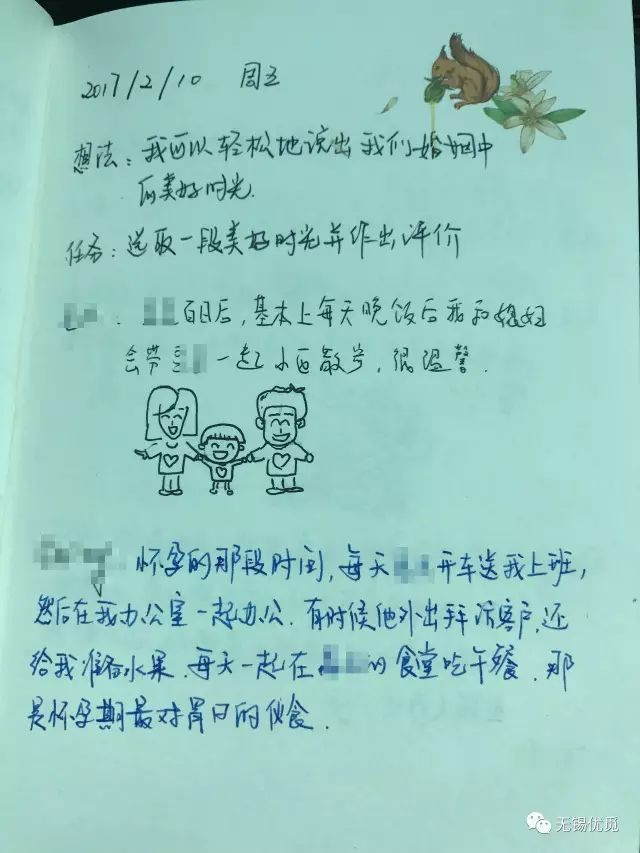 2017/2/10 周五
想法：我可以轻松地说出我们婚姻中
的美好时光.
任务：选取一段美好时光并作出评价
百日后，基本上每天晚饭后我和媳妇
会带 一起小区散步，很温馨.
怀孕的那段时间，每天 开车送我上班，
然后在我办公室一起办公. 有时候他外出拜访客户，还
给我准备水果. 每天一起在 的食堂吃午餐. 那
是怀孕期最对胃口的伙食.
无锡优觅